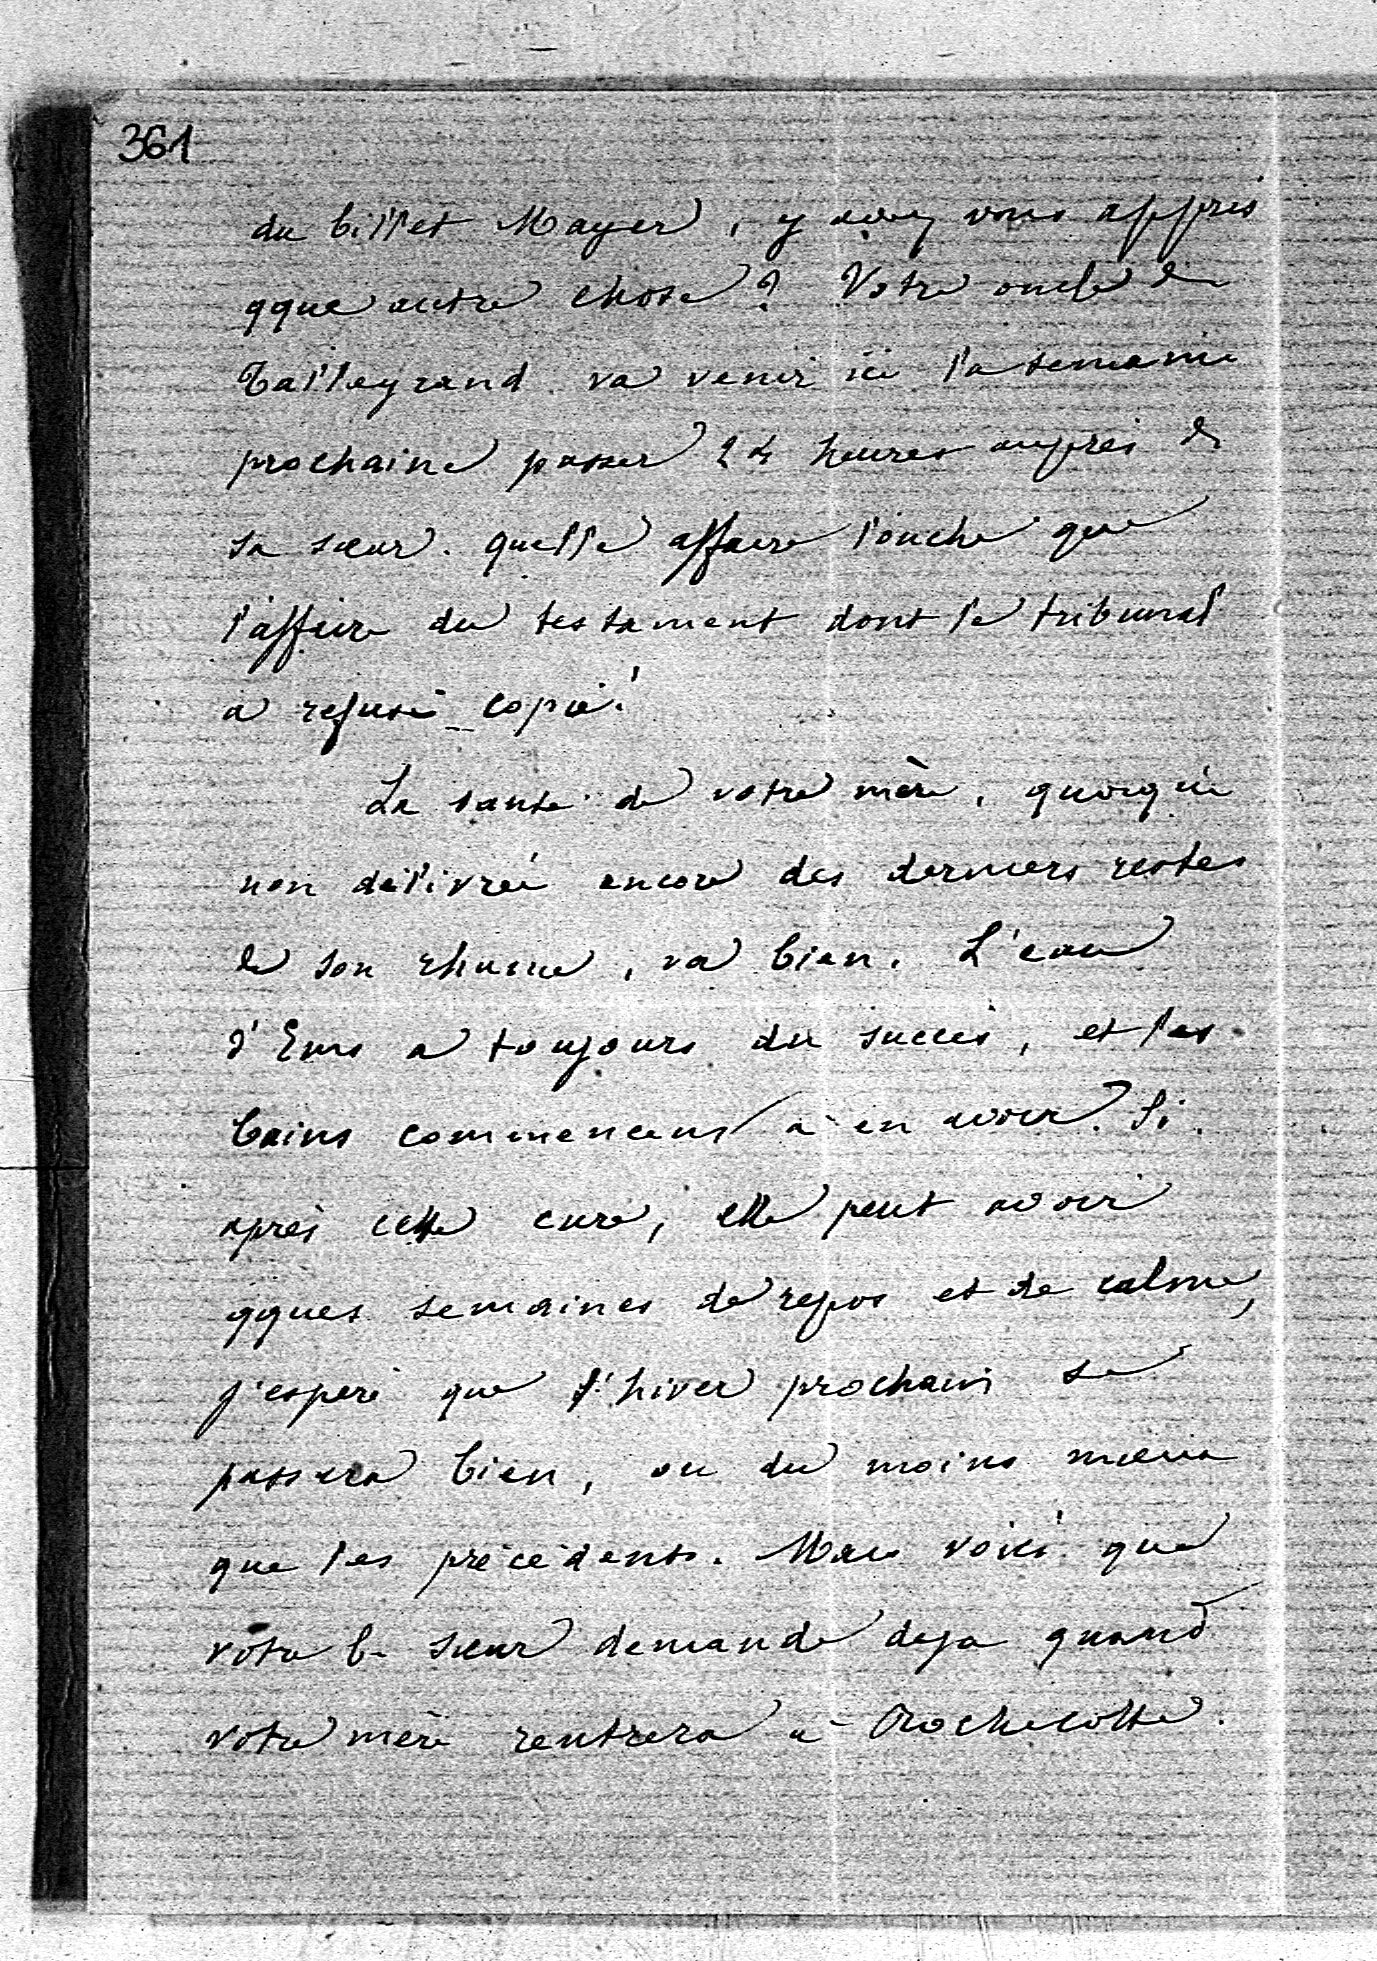 361
du billet Mayer, y avez vous appris
qque autre chose ? Votre oncle de
Talleyrand va venir ici la semaine
prochaine passer 24 heures auprès de
sa sœur. quelle affaire louche que
l'affaire du testament dont le tribunal
a refusé copie !
La santé de votre mère, quoique
non délivrée encore des derniers restes
de son rhume, va bien. L'eau
d'Ems a toujours du succès, et les
bains commencent à en avoir. Si
après cette cure, elle peut avoir
qques semaines de repos et de calme,
j'espère que l'hiver prochain se
passera bien, ou du moins mieux
que les précédents. Mais voici que
votre b. sœur demande deja quand
votre mère rentrera à Rochecotte.